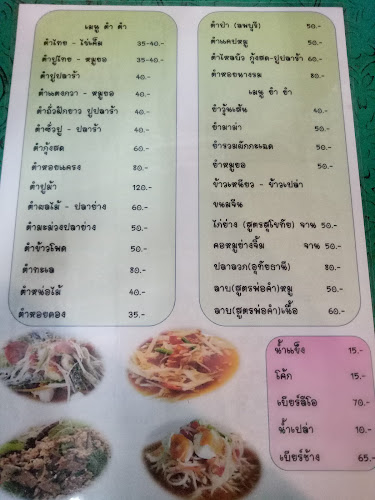 เมนู ตำ ตำ
ตำไทย - ไข่เค็ม 35-40.-
ตำปูไทย - หมูยอ 35-40.-
ตำปูปลาร้า 40.-
ตำแตงกวา - หมูยอ 40.-
ตำถั่วฝักยาว ปูปลาร้า 40.-
ตำซั่วปู - ปลาร้า 40.-
ตำกุ้งสด 60.-
ตำหอยแครง 80.-
ตำปูม้า 120.-
ตำผลไม้ - ปลาย่าง 60.-
ตำมะม่วงปลาย่าง 50.-
ตำข้าวโพด 50.-
ตำทะเล 80.-
ตำหน่อไม้ 40.-
ตำหอยดอง 35.-
ตำป่า (ลพบุรี) 50.-
ตำแคบหมู 50.-
ตำไหลบัว กุ้งสด-ปูปลาร้า 60.-
ตำหอยนางรม 80.-
เมนู ยำ ยำ
ยำวุ้นเส้น 40.-
ยำมาม่า 50.-
ยำรวมผักกะเฉด 50.-
ยำหมูยอ 50.-
ข้าวเหนียว - ข้าวเปล่า
ขนมจีน
ไก่ย่าง (สูตรสุโขทัย) จาน 50.-
คอหมูย่างจิ้ม จาน 50.-
ปลาลวก(อุทัยธานี) 80.-
ลาบ(สูตรพ่อคำ)หมู 50.-
ลาบ(สูตรพ่อคำ)เนื้อ 60.-
น้ำแข็ง 15.-
โค้ก 15.-
เบียร์ลีโอ 70.-
น้ำเปล่า 10.-
เบียร์ช้าง 65.-